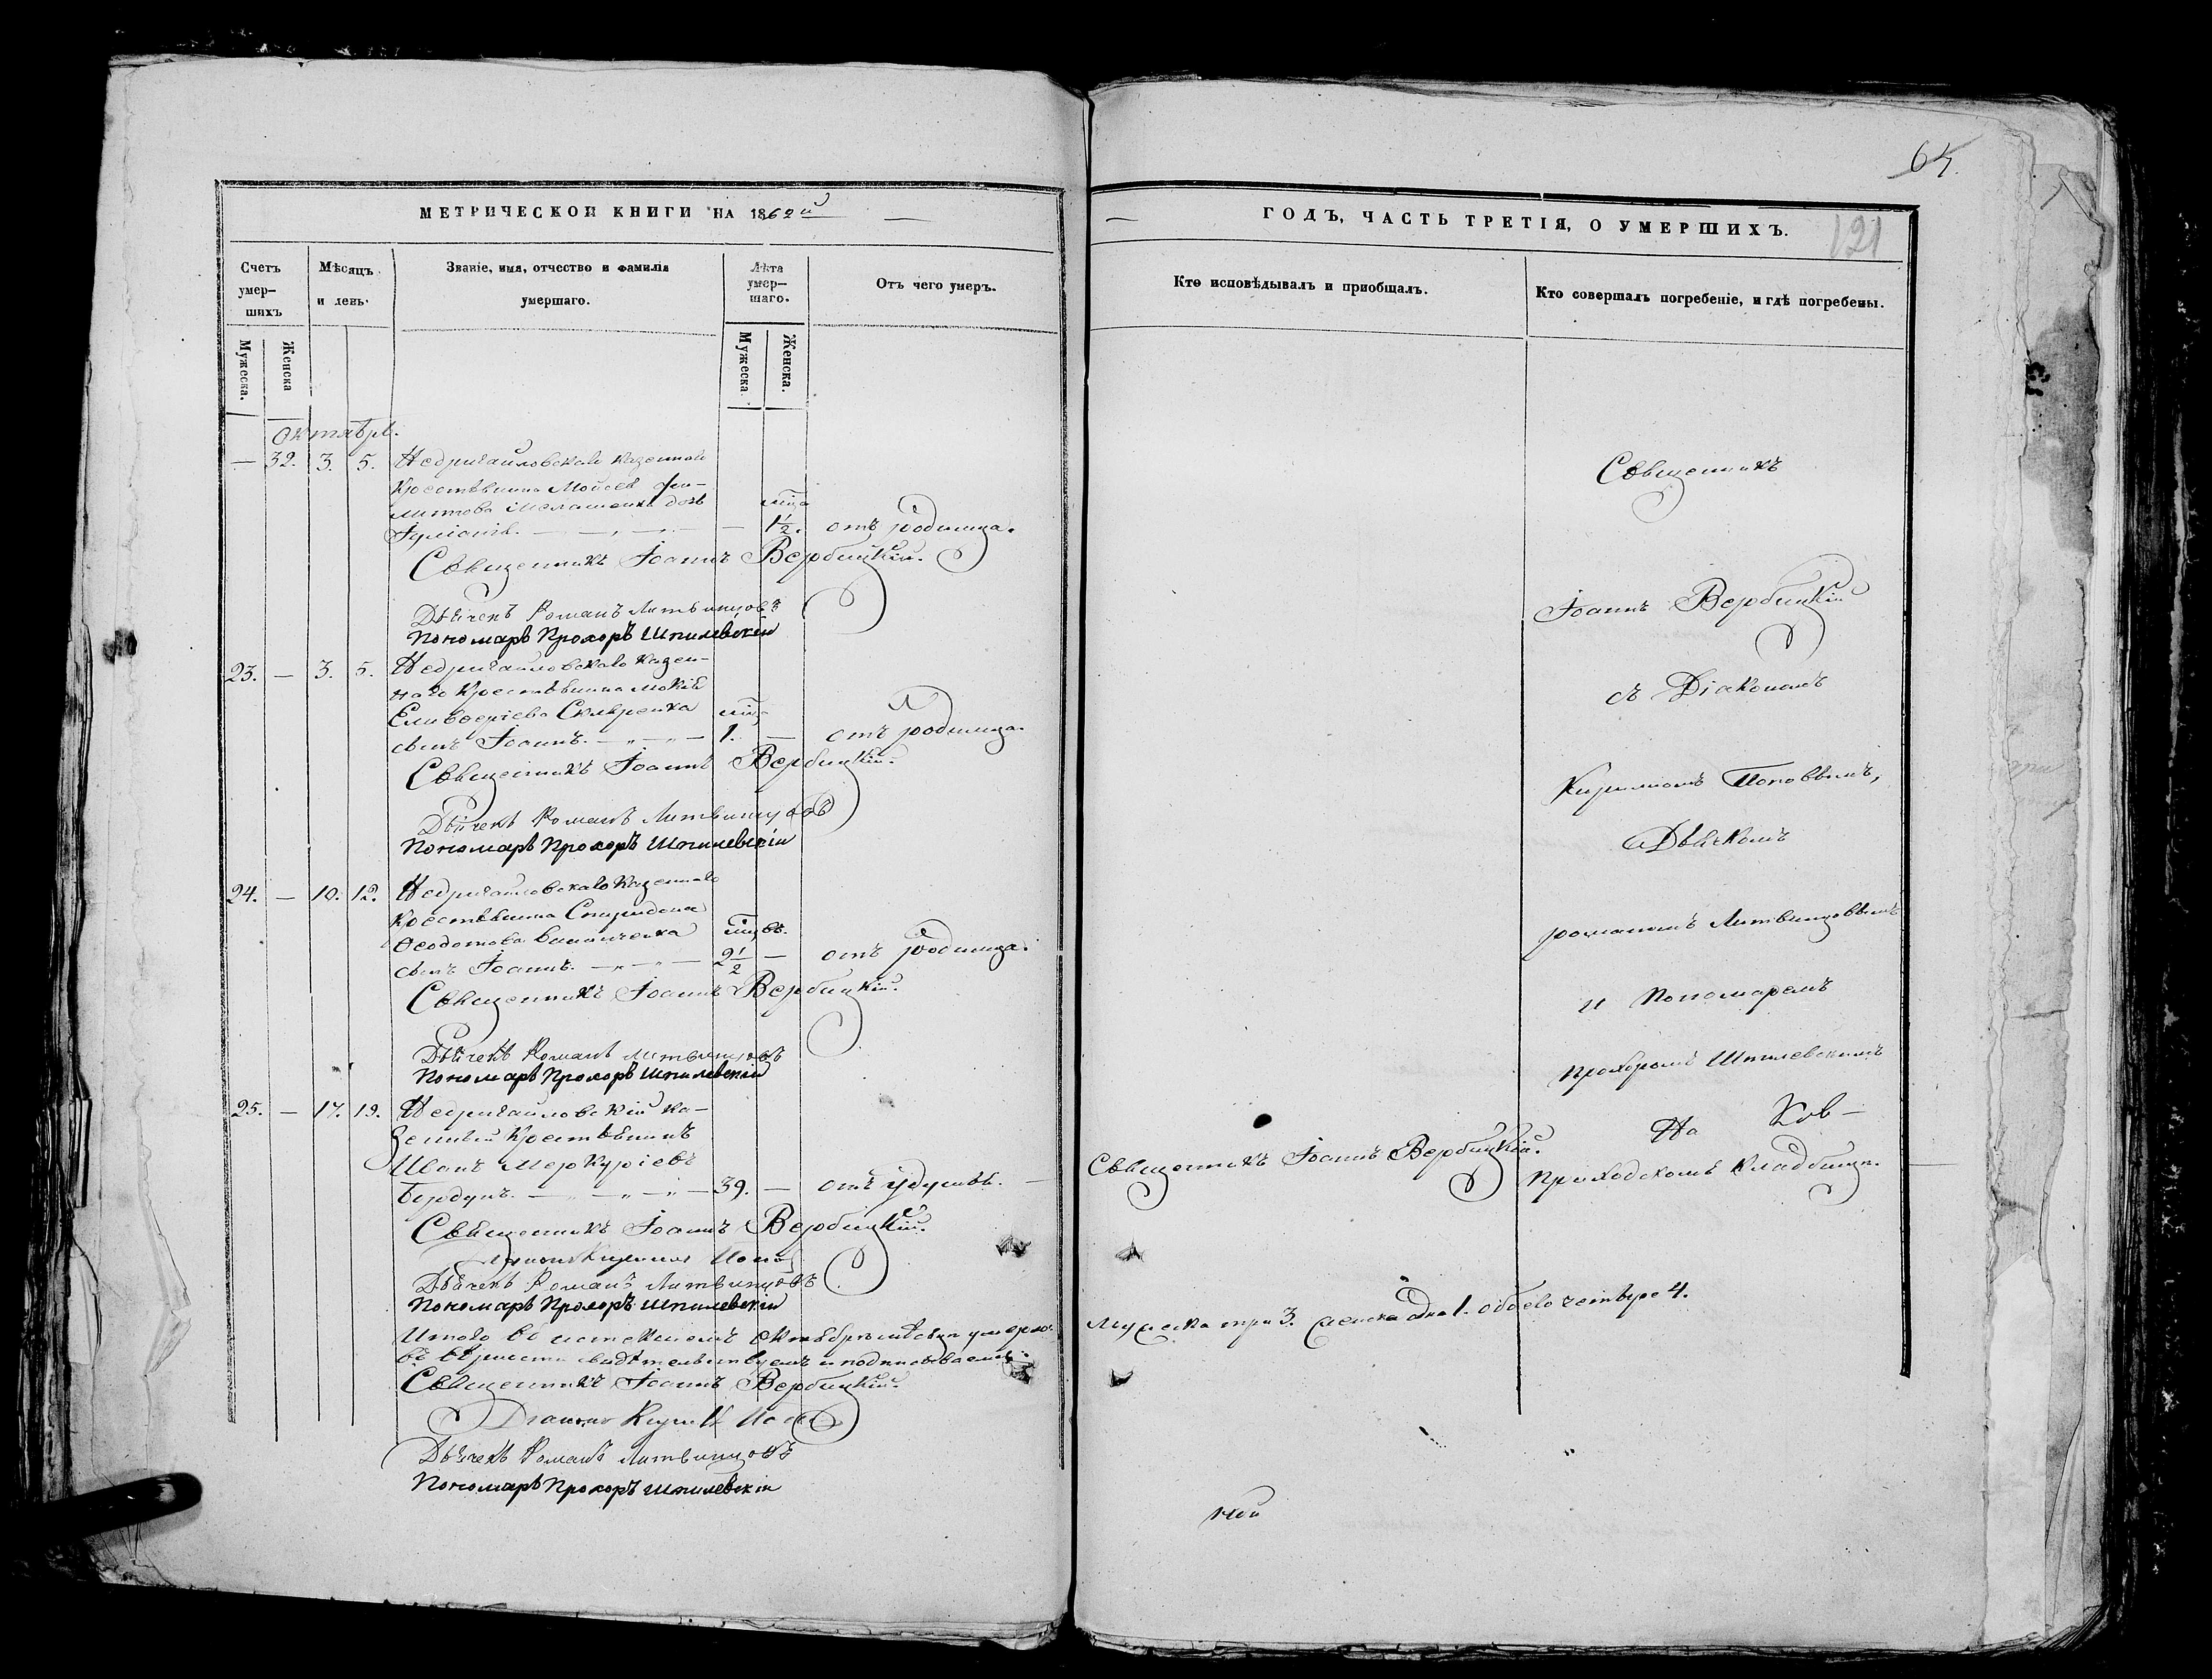 64.
121
МЕТРИЧЕСКОЙ КНИГИ НА 1862й
ГОДЪ, ЧАСТЬ ТРЕТІЯ, О УМЕРШИХЪ.
Счетъ умер-шихъ
Мѣсяцъ и день.
Званіе, имя, отчество и фамилія умершаго.
Лѣта умер-шаго.
Отъ чего умеръ.
Кто исповѣдывалъ и приобщалъ.
Кто совершалъ погребеніе, и гдѣ погребены.
Мужеска.
Женска
Мужеска.
Женска.
Октябрь.
— 32. 3. 5. Недригайловскаго казенного
крестьянина Моисея
дочь мца
— 1½. отъ родимца.
Священникъ Іоаннъ Вербицкій.
Дьячекъ Романъ Литвинцовъ
Пономарь Прохоръ Шпилевскій
23. — 3. 5. Недригайловскаго казен-
наго крестьянина Мокія
Елевѳеріева Скляренка мца
сынъ Іоаннъ. — „ — „ — 1. — отъ родимца.
Священникъ Іоаннъ Вербицкій.
Дьячекъ Романъ Литвинцовъ
Пономарь Прохоръ Шпилевскій
24. — 10. 12. Недригайловскаго казеннаго
крестьянина Спиридона
Ѳеодотова мцвъ.
сынъ Іоаннъ. — „ — „ — 2½ — отъ родимца.
Священникъ Іоаннъ Вербицкій.
Дьячекъ Романъ Литвинцовъ
Пономарь Прохоръ Шпилевскій
25. — 17. 19. Недригайловскій ка-
зенный крестьянинъ
Иванъ Меркуріевъ
Бердунъ. — „ — „ — „ — 39. — отъ удушья. —
Священникъ Іоаннъ Вербицкій.
Діаконъ Кириллъ Поповъ
Дьячекъ Романъ Литвинцовъ
Пономарь Прохоръ Шпилевскій
Итого въ истекшемъ октябрѣ мѣсяцѣ умерло
въ вѣрности свидѣтельствуемъ и подписываемъ.
Священникъ Іоаннъ Вербицкій.
Діаконъ Кириллъ Поповъ
Дьячекъ Романъ Литвинцовъ
Пономарь Прохоръ Шпилевскій
Священникъ Іоаннъ Вербицкій.
Мужеска три 3. Женска одна 1. обоего четыре 4.
Священникъ
Іоаннъ Вербицкій
съ Діакономъ
Кирилломъ Поповымъ,
Дьячкомъ
Романомъ Литвинцовымъ
и Пономаремъ
Прохоромъ Шпилевскимъ
На
приходскомъ кладбищѣ.